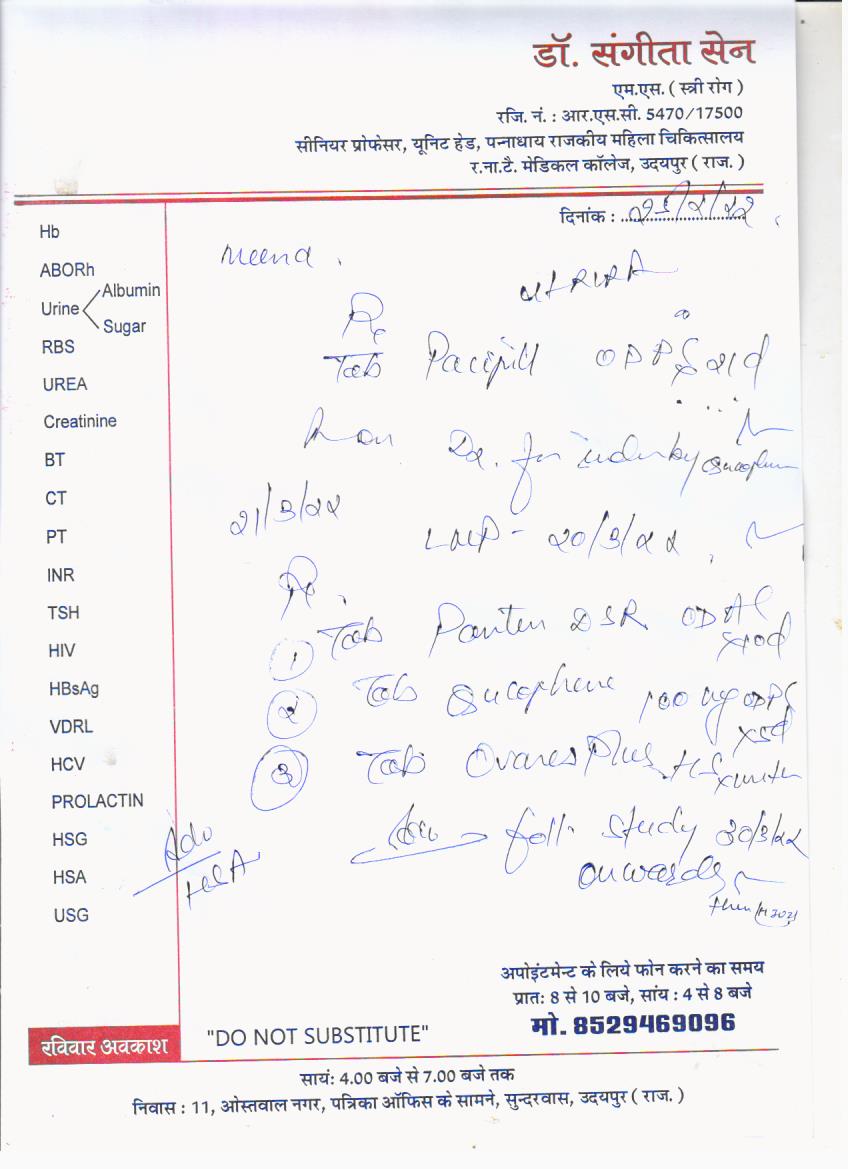 डॉ. संगीता सेन
एम.एस. ( स्त्री रोग )
रजि. नं. : आर.एस.सी. 5470/17500
सीनियर प्रोफेसर, यूनिट हेड, पन्नाधाय राजकीय महिला चिकित्सालय
र.ना.टै. मेडिकल कॉलेज, उदयपुर ( राज. )
दिनांक :
Hb
ABORh
Urine Albumin
Sugar
RBS
UREA
Creatinine
BT
CT
PT
INR
TSH
HIV
HBsAg
VDRL
HCV
PROLACTIN
HSG
HSA
USG
Meena
Rx
Tab Pacipill
२१/३/२२
LMP - २०/३/२२
Rx
१ Tab Panten DSR OD
२ Tab 100 mg
३ Tab Ovares Plus HS
Adv
HSA
Adv foll. study ३०/३/२२
onwards
अपोइंटमेन्ट के लिये फोन करने का समय
प्रातः 8 से 10 बजे, सांय : 4 से 8 बजे
मो. 8529469096
रविवार अवकाश
"DO NOT SUBSTITUTE"
सायं: 4.00 बजे से 7.00 बजे तक
निवास : 11, ओस्तवाल नगर, पत्रिका ऑफिस के सामने, सुन्दरवास, उदयपुर ( राज. )